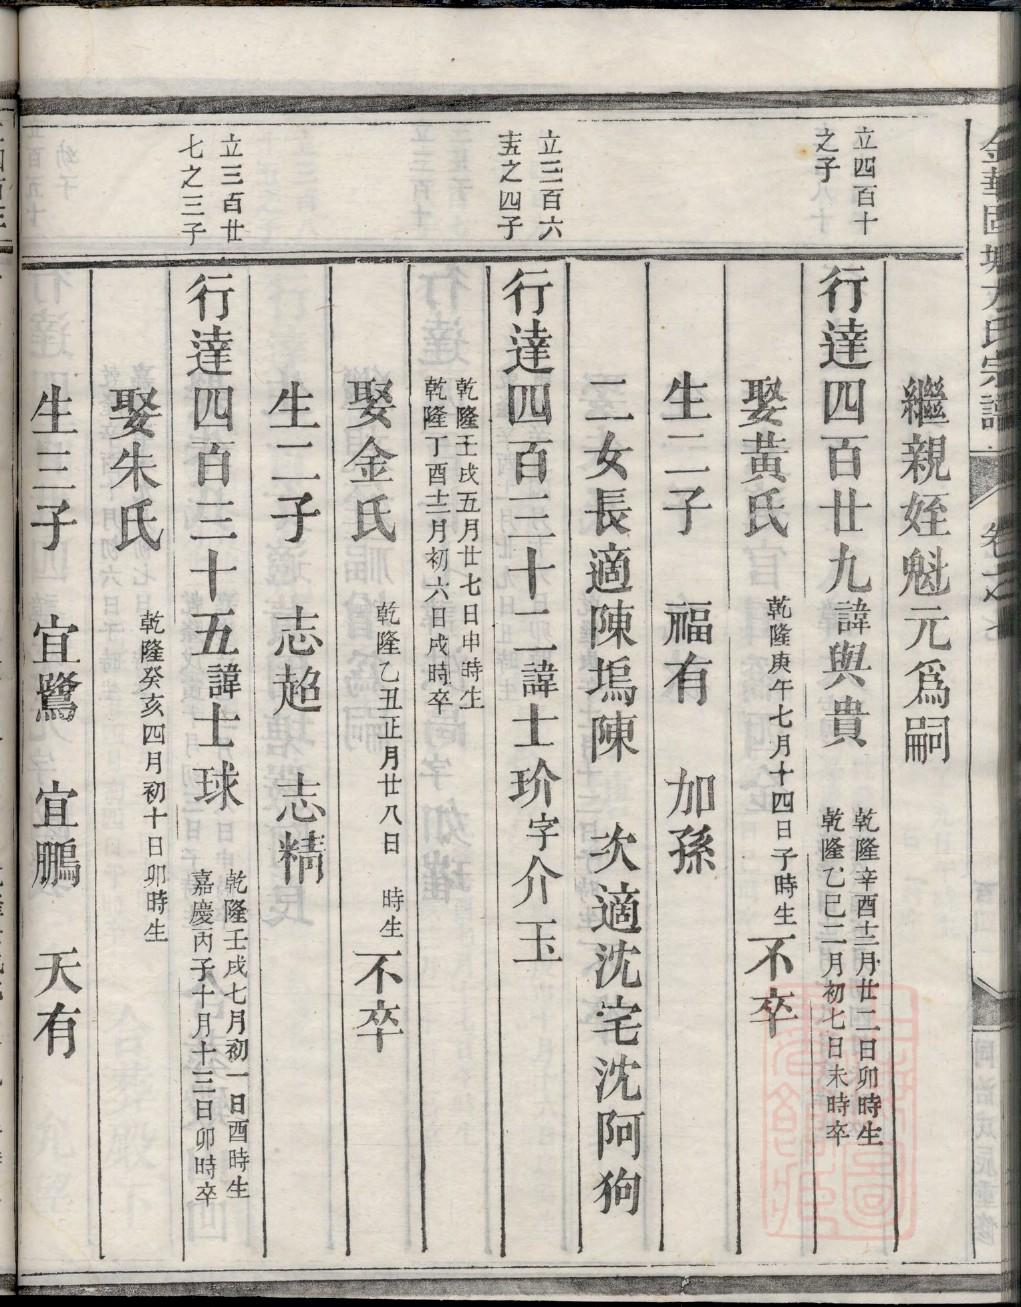 金華□塘方氏宗譜 卷之七
同治戊辰重修
繼親姪魁元爲嗣
立四百十
之子
行達四百廿九諱與貴
乾隆辛酉十二月廿二日卯時生
乾隆乙巳二月初七日未時卒
娶黃氏
乾隆庚午七月十四日子時生
不卒
生二子 福有 加孫
二女長適陳塢陳 次適沈宅沈阿狗
立三百六
十五之四子
行達四百三十二諱士玠字介玉
乾隆壬戌五月廿七日申時生
乾隆丁酉十二月初六日戌時卒
娶金氏
乾隆乙丑正月廿八日 時生
不卒
生二子 志趂 志精
立三百廿
七之三子
行達四百三十五諱士球
乾隆壬戌七月初一日酉時生
嘉慶丙子十月十三日卯時卒
娶朱氏
乾隆癸亥四月初十日卯時生
生三子 宜鷺 宜鵬 天有